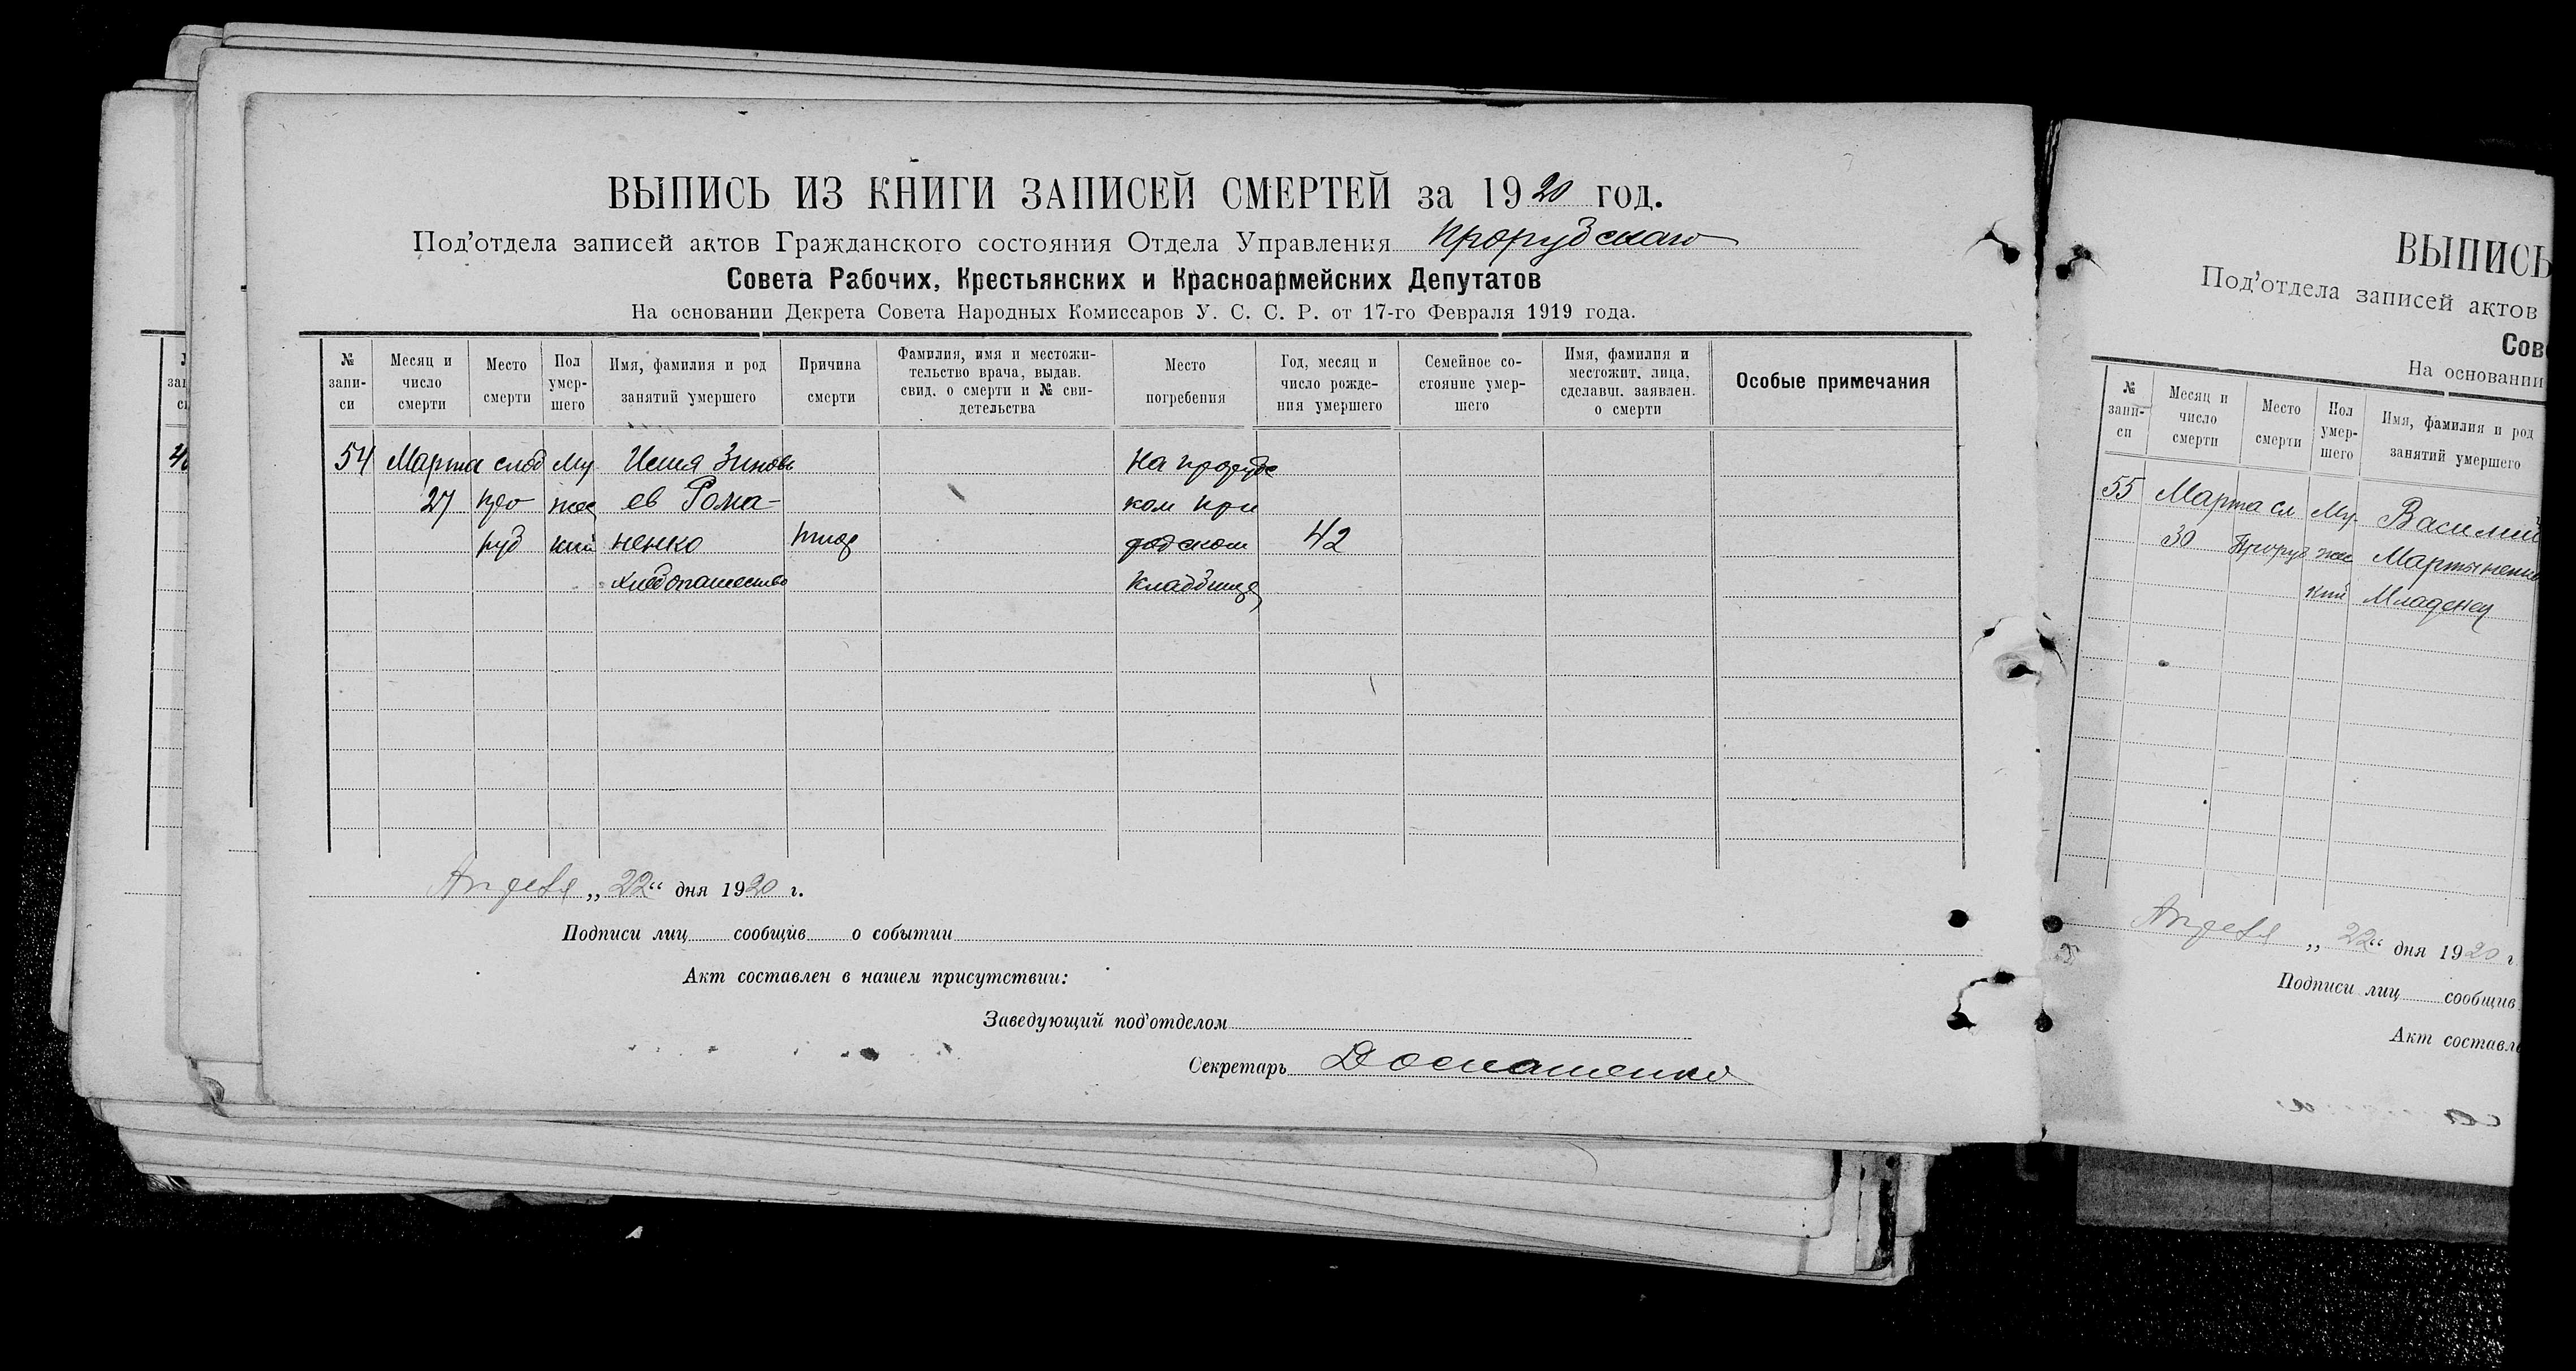 ВЫПИСЬ ИЗ КНИГИ ЗАПИСЕЙ СМЕРТЕЙ за 1920 год.
Под'отдела записей актов Гражданского состояния Отдела Управления Прорубскаго
Совета Рабочих, Крестьянских и Красноармейских Депутатов
На основании Декрета Совета Народных Комиссаров У. С. С. Р. от 17-го Февраля 1919 года.
№ запи-си
Месяц и число смерти
Место смерти
Пол умер-шего
Имя, фамилия и род занятий умершего
Причина смерти
Фамилия, имя и местожи-тельство врача, выдав. свид. о смерти и № сви-детельства
Место погребения
Год, месяц и число рожде-ния умершего
Семейное со-стояние умер-шего
Имя, фамилия и местожит. лица, сделавш. заявлен. о смерти
Особые примечания
54 Марта слоб Му Илия Зиновь На прорубс
27 про жес ев Рома- ком при
руб кий ненко тиф ходском 42
хлебопашество кладбище
Апреля „22“ дня 1920 г.
Подписи лиц сообщив о событии
Акт составлен в нашем присутствии:
Заведующий под'отделом
Секретарь
ВЫПИСЬ
Под'отдела записей актов
Сов
На основании
№ запи-си
Месяц и число смерти
Место смерти
Пол умер-шего
Имя, фамилия и род занятий умершего
55 Марта сл Му Василий
30 Проруб жес Мартыненко
кий Младенец
Апреля „22“ дня 1920 г
Подписи лиц сообщив
Акт составле